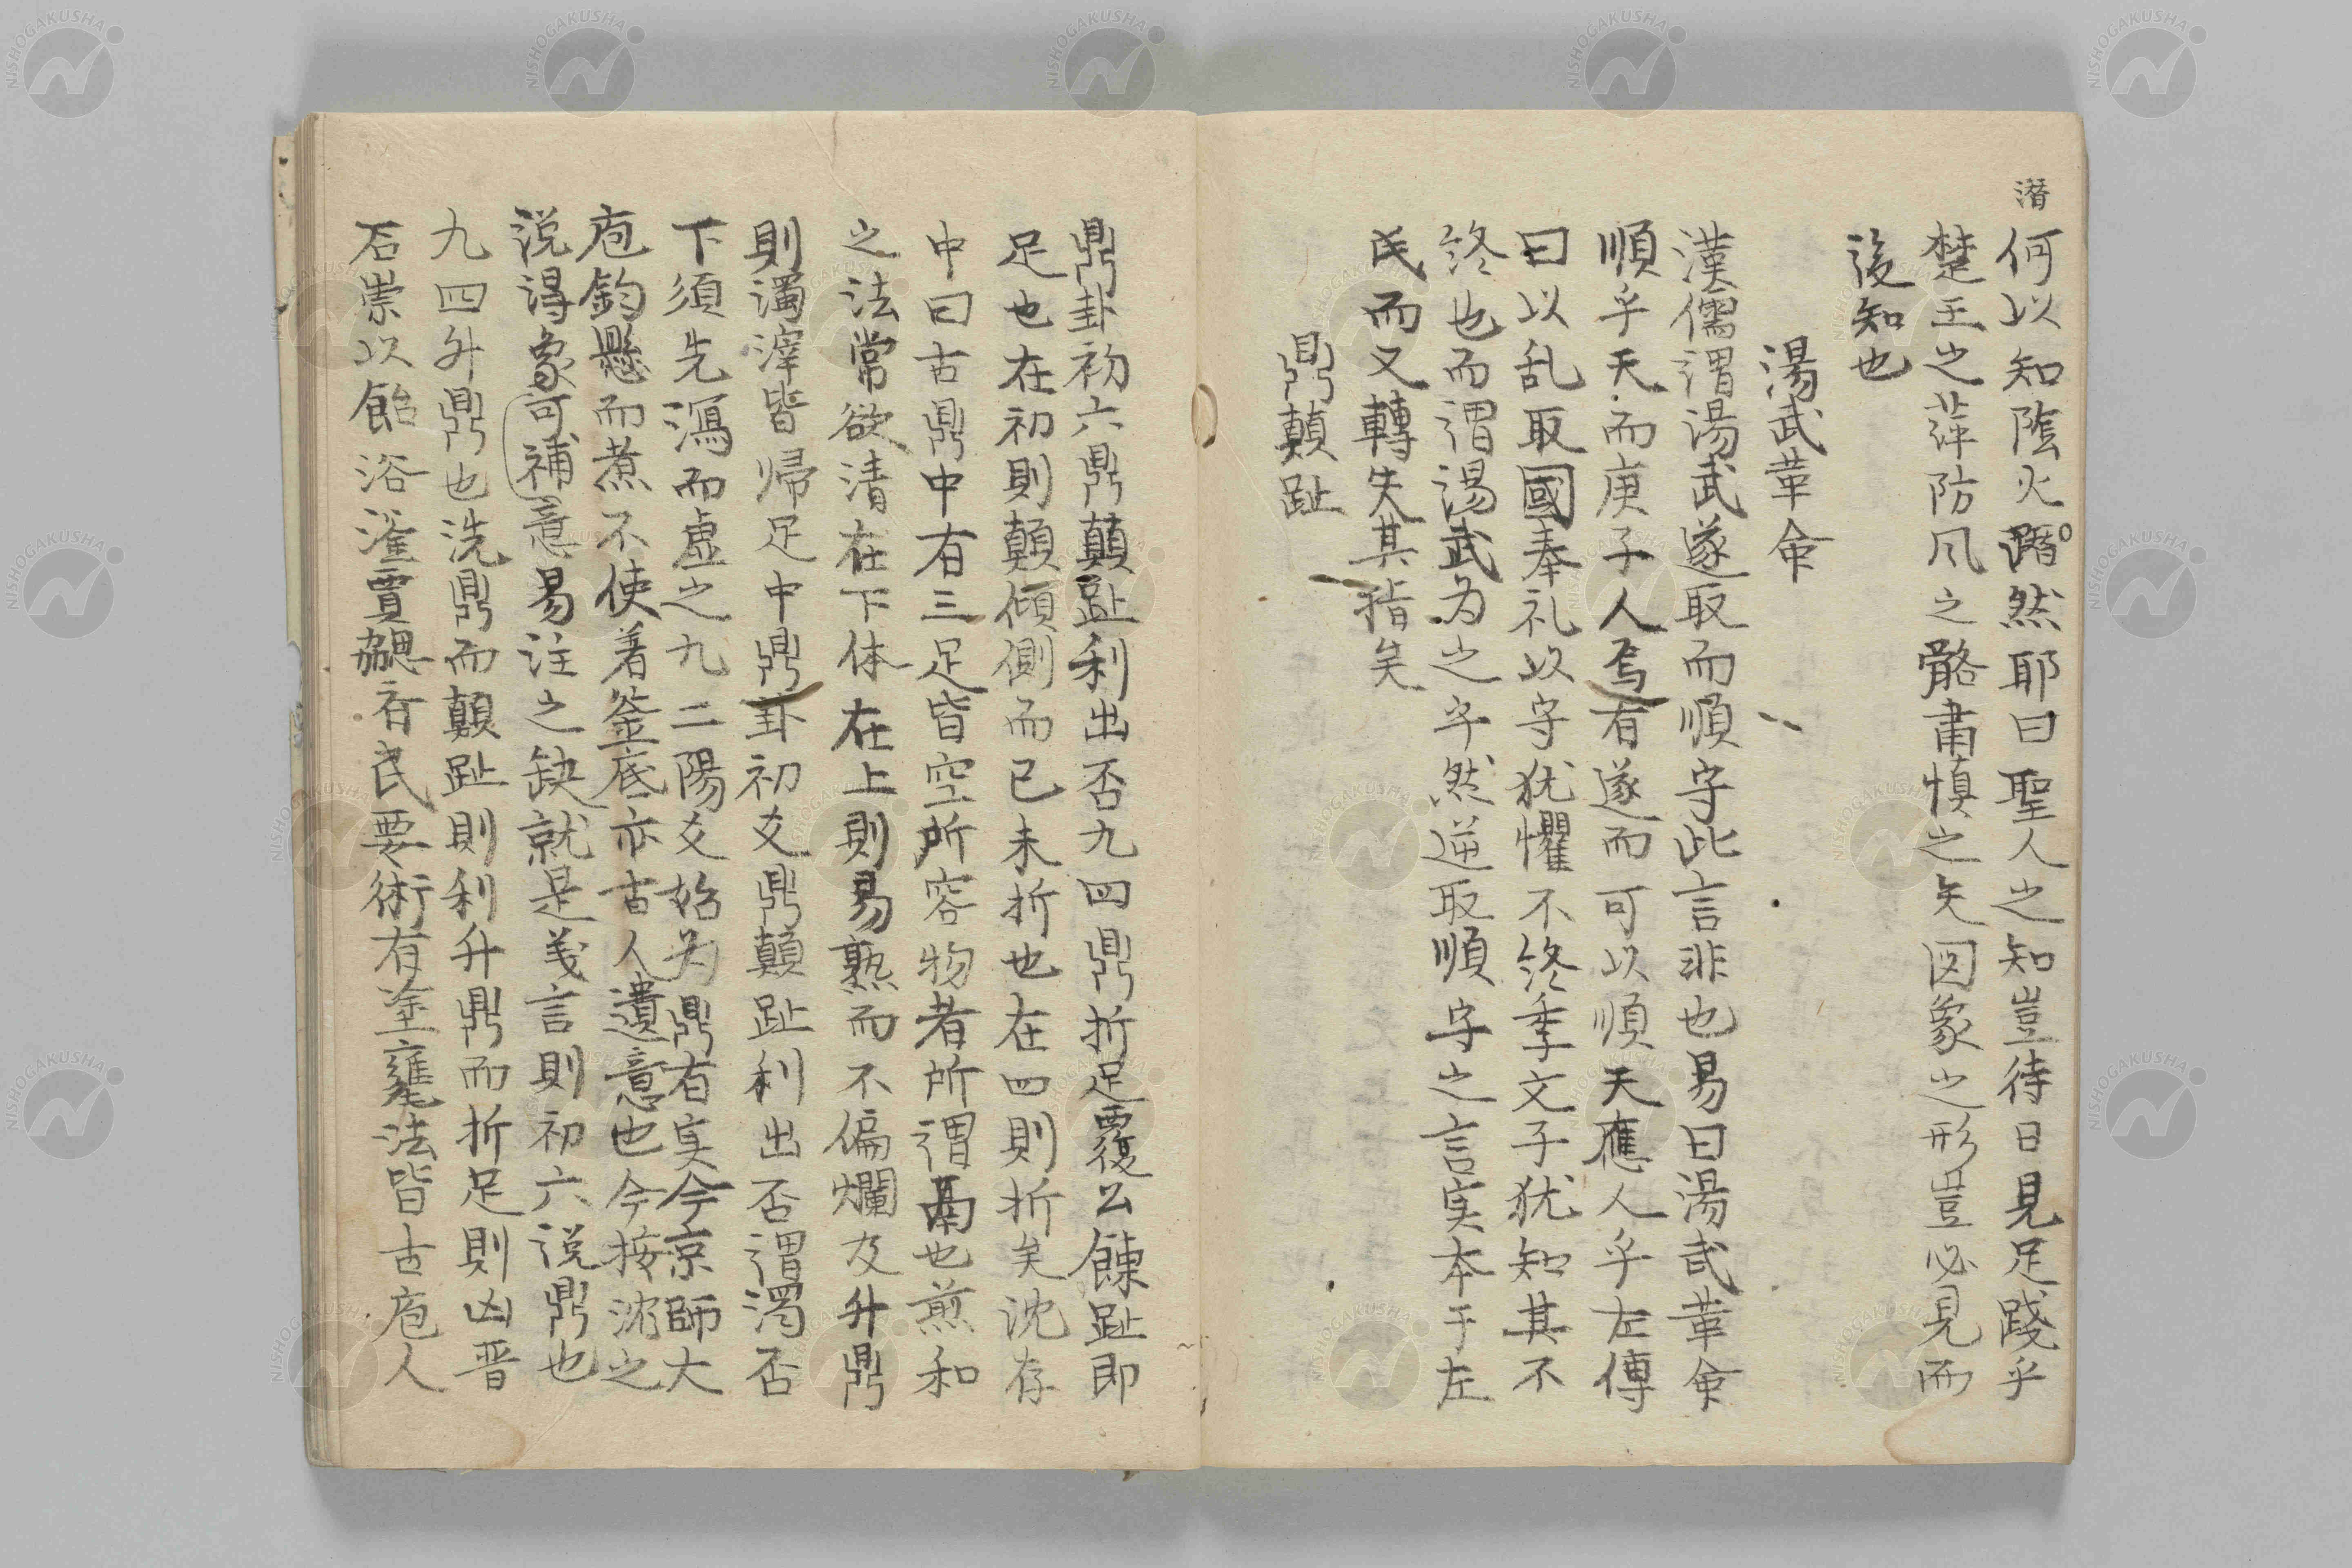 潛
何以知陰火潛然耶曰聖人之知豈待日見足踐乎
楚王之萍防风之骼肅慎之矢図象之形豈必見而
後知也
湯武革命
漢儒謂湯武遂取而順守此言非也易曰湯武革命
順乎天而庚子人焉有遂而可以順天應人乎左傳
曰以乱取國奉礼以守犹懼不終季文子犹知其不
終也而謂湯武为之乎然逆取順守之言实本于左
氏而又轉失其指矣
鼎顛趾
鼎卦初六鼎顛趾利出否九四鼎折足覆公餗趾即
足也在初則顛傾側而已未折也在四則折矣沈存
中曰古鼎中有三足皆空所容物者所謂鬲也煎和
之法常欲清在下体在上則易熟而不偏爛及升鼎
則濁滓皆帰足中鼎卦初爻鼎顛趾利出否謂濁否
下須先瀉而虛之九二陽爻始为鼎有实今京師大
庖鈞懸而煮不使着釜底亦古人遺意也今按沈之
説得象可補意易注之缺就是义言則初六説鼎也
九四升鼎也洗鼎而顛趾則利升鼎而折足則凶晋
石崇以飴浴釜賈勰有民要術有塗甕法皆古庖人
NISHOGAKUSHA